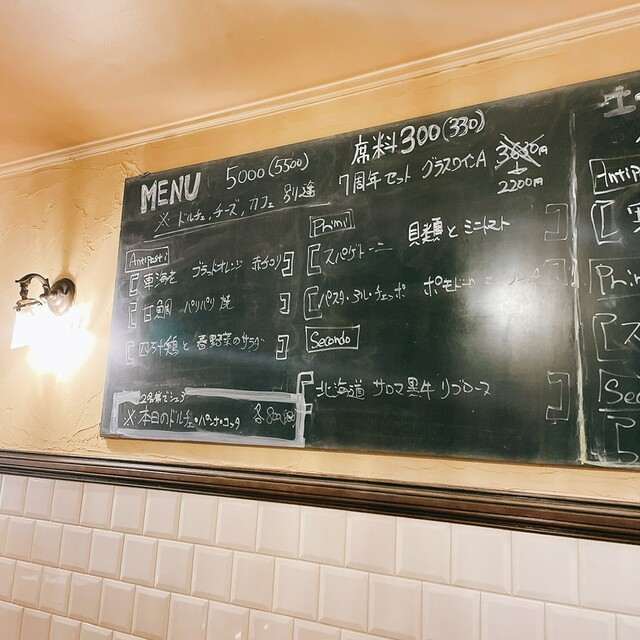 MENU 5000(5500)
席料300(330)
※ ドルチェ、チーズ、カフェ 別途
7周年セット グラスワインA 3630円
↓
2200円
Antipasti
車海老 ブラッドオレンジ
甘鯛 パリパリ焼
四万十鶏と春野菜のサラダ
2名様でシェア
※本日のドルチェ・パンナコッタ 各800(880)
Primi
スパゲトーニ 貝類とミニトマト
パスタ・アル・チェッポ ポモドーロ
Secondo
北海道 サロマ黒牛 リブロース
Antipas
Prim
ス
Sec